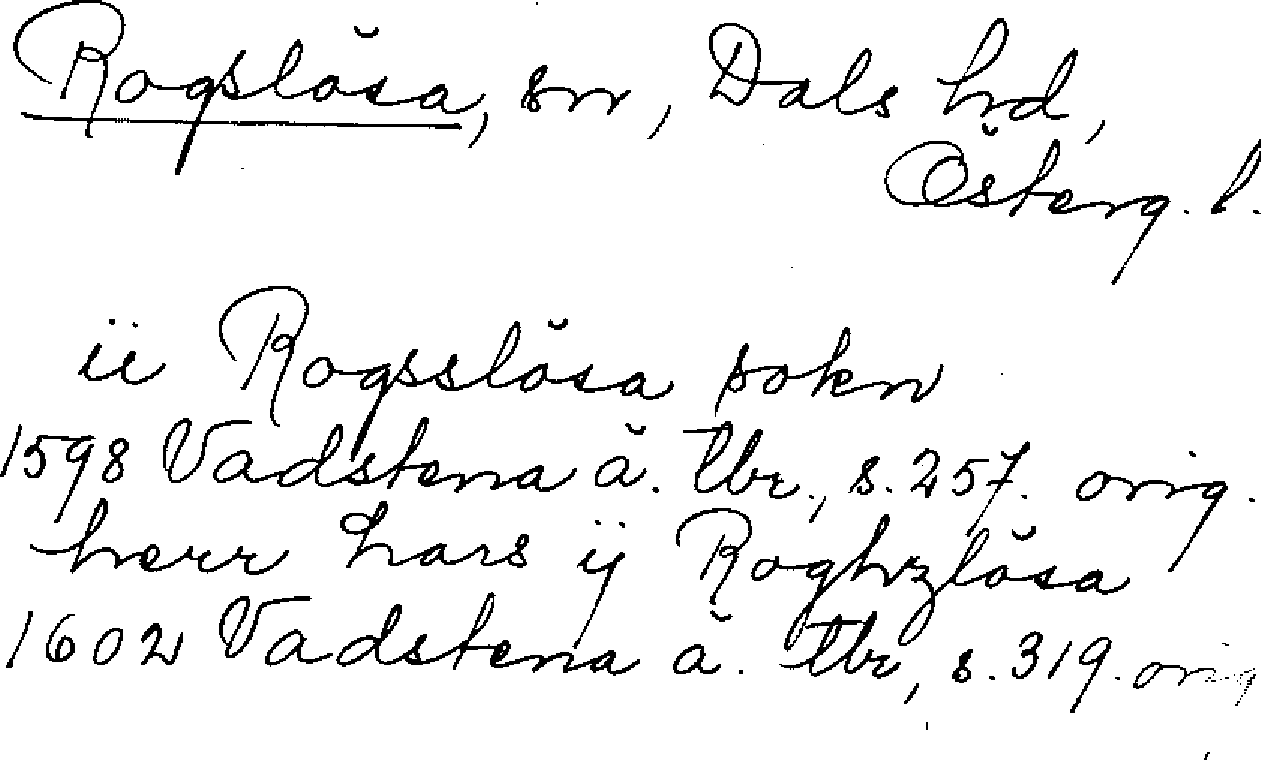 Rogslösa, sn, Dals hd,
Österg. l.
ii Rogsslösa sokn
1598 Vadstena ä. tbr., s. 257. orig.
herr Lars ij Roghzlösa
1602 Vadstena ä. tbr, s. 319. orig